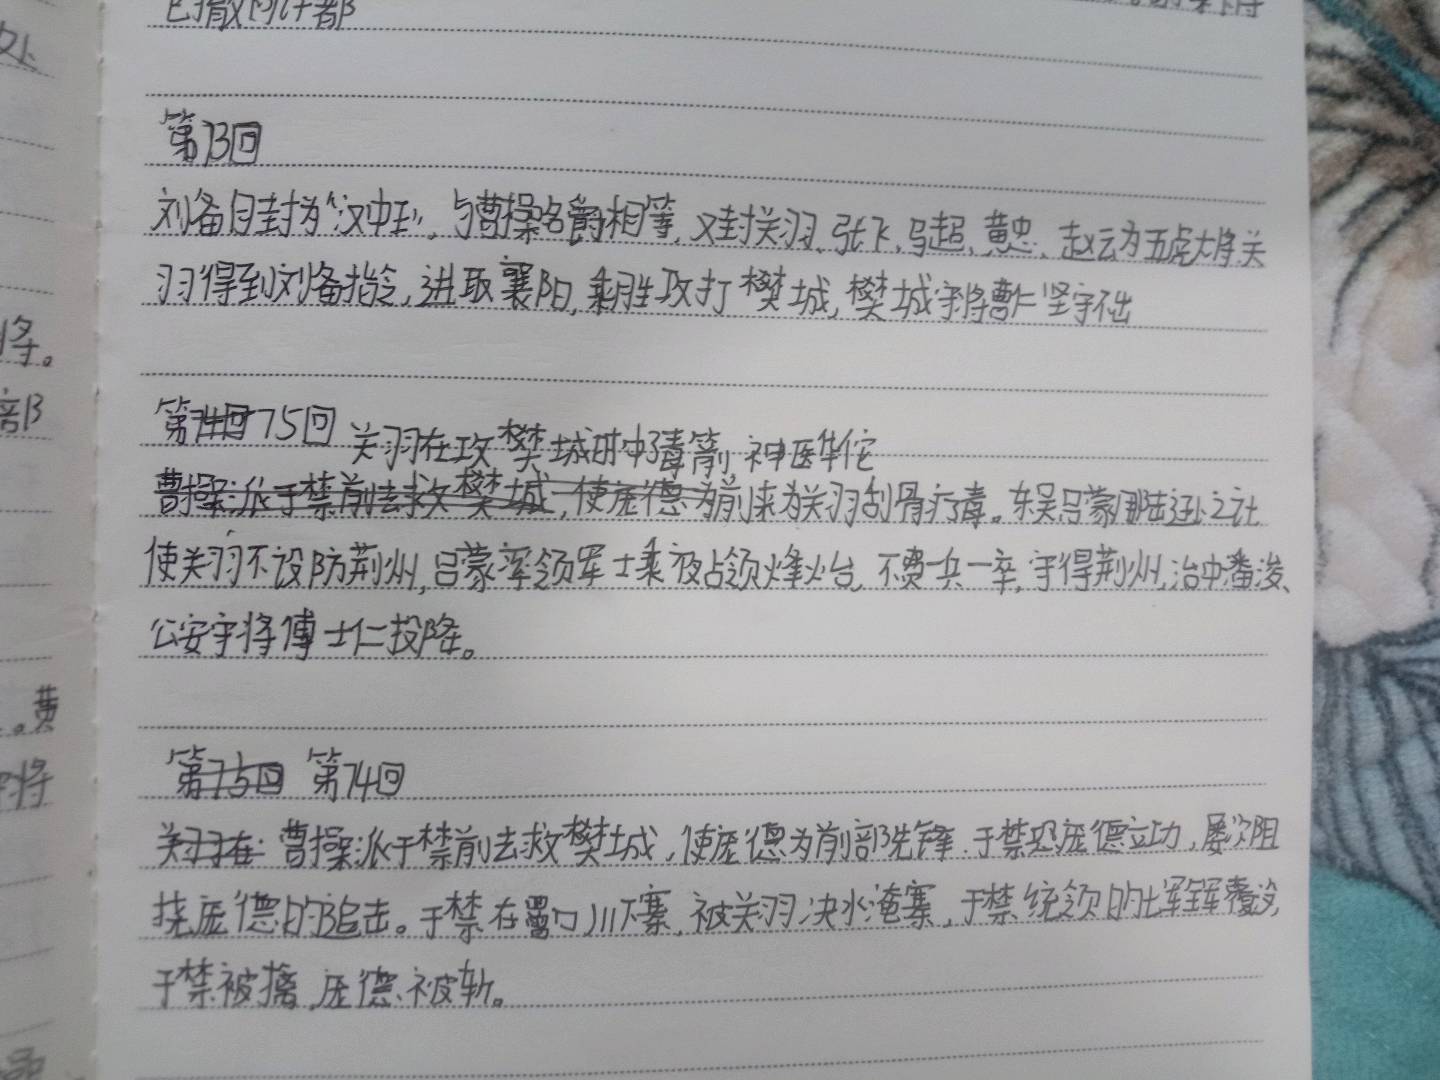 第73回
刘备自封为“汉中王”，与曹操名爵相等，又封关羽、张飞、马超、黄忠、赵云为五虎大将关
羽得到刘备指令，进取襄阳，乘胜攻打樊城，樊城守将曹仁坚守不出
第74回75回 关羽在攻樊城时中毒箭，神医华佗
曹操派于禁前去救樊城，使庞德为前来为关羽刮骨疗毒。东吴吕蒙用陆逊之计
使关羽不设防荆州，吕蒙率领军士乘夜占领烽火台，不费一兵一卒，守得荆州，治中潘浚、
公安守将傅士仁投降。
第75回 第74回
关羽在 曹操派于禁前去救樊城，使庞德为前部先锋 于禁恐庞德立功，屡次阻
挠庞德的追击。于禁在罾口川下寨，被关羽决水淹寨，于禁统领的七军全军覆没，
于禁被擒，庞德被斩。
将。
部
。黄
将